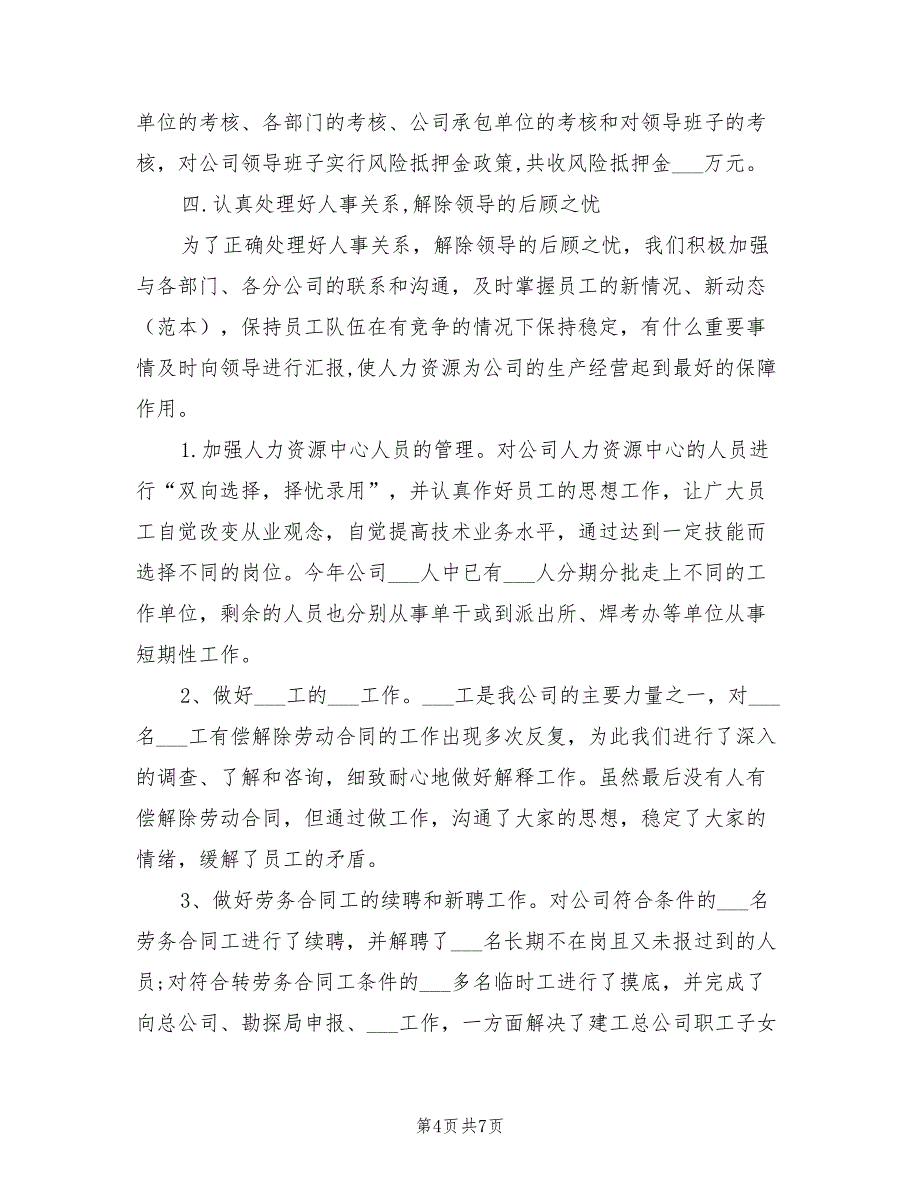 单位的考核、各部门的考核、公司承包单位的考核和对领导班子的考
核，对公司领导班子实行风险抵押金政策,共收风险抵押金___万元。
四.认真处理好人事关系,解除领导的后顾之忧
为了正确处理好人事关系，解除领导的后顾之忧，我们积极加强
与各部门、各分公司的联系和沟通，及时掌握员工的新情况、新动态
（范本），保持员工队伍在有竞争的情况下保持稳定，有什么重要事
情及时向领导进行汇报,使人力资源为公司的生产经营起到最好的保障
作用。
1.加强人力资源中心人员的管理。对公司人力资源中心的人员进
行“双向选择，择忧录用”，并认真作好员工的思想工作，让广大员
工自觉改变从业观念，自觉提高技术业务水平，通过达到一定技能而
选择不同的岗位。今年公司___人中已有___人分期分批走上不同的工
作单位，剩余的人员也分别从事单干或到派出所、焊考办等单位从事
短期性工作。
2、做好___工的___工作。___工是我公司的主要力量之一，对___
名___工有偿解除劳动合同的工作出现多次反复，为此我们进行了深入
的调查、了解和咨询，细致耐心地做好解释工作。虽然最后没有人有
偿解除劳动合同，但通过做工作，沟通了大家的思想，稳定了大家的
情绪，缓解了员工的矛盾。
3、做好劳务合同工的续聘和新聘工作。对公司符合条件的___名
劳务合同工进行了续聘，并解聘了___名长期不在岗且又未报过到的人
员;对符合转劳务合同工条件的___多名临时工进行了摸底，并完成了
向总公司、勘探局申报、___工作，一方面解决了建工总公司职工子女
第4页共7页